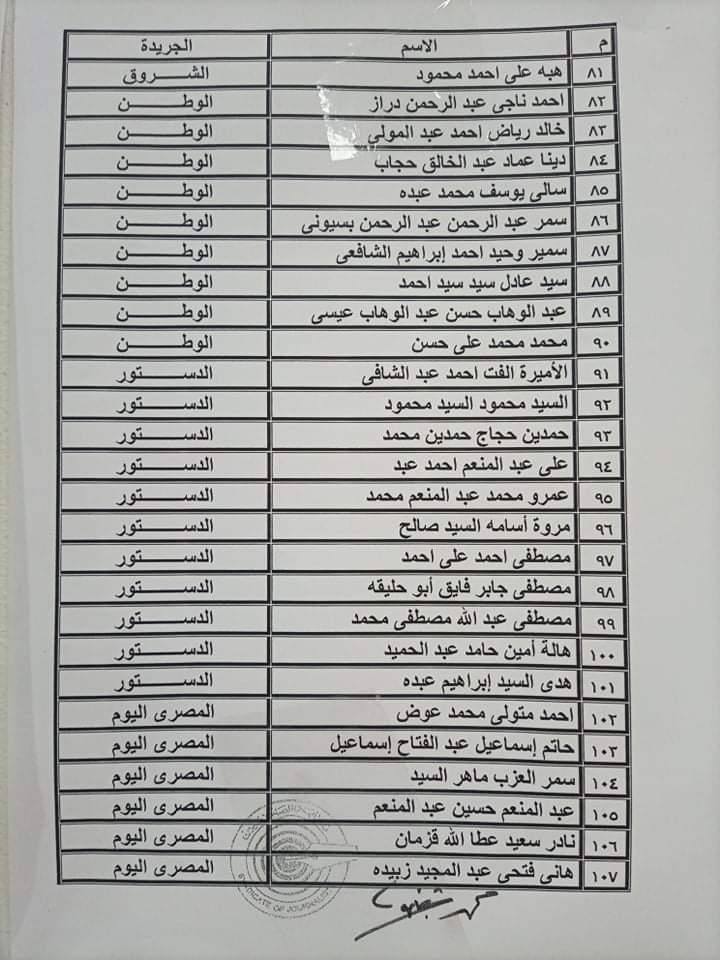 م الاسم الجريدة
٨١ هبه على احمد محمود الشروق
٨٢ احمد ناجى عبد الرحمن دراز الوطن
٨٣ خالد رياض احمد عبد المولى الوطن
٨٤ دينا عماد عبد الخالق حجاب الوطن
٨٥ سالى يوسف محمد عبده الوطن
٨٦ سمر عبد الرحمن عبد الرحمن بسيونى الوطن
٨٧ سمير وحيد احمد إبراهيم الشافعى الوطن
٨٨ سيد عادل سيد سيد احمد الوطن
٨٩ عبد الوهاب حسن عبد الوهاب عيسى الوطن
٩٠ محمد محمد على حسن الوطن
٩١ الأميرة الفت احمد عبد الشافى الدستور
٩٢ السيد محمود السيد محمود الدستور
٩٣ حمدين حجاج حمدين محمد الدستور
٩٤ على عبد المنعم احمد عبد الدستور
٩٥ عمرو محمد عبد المنعم محمد الدستور
٩٦ مروة أسامه السيد صالح الدستور
٩٧ مصطفى احمد على احمد الدستور
٩٨ مصطفى جابر فايق أبو حليقه الدستور
٩٩ مصطفى عبد الله مصطفى محمد الدستور
١٠٠ هالة أمين حامد عبد الحميد الدستور
١٠١ هدى السيد إبراهيم عبده الدستور
١٠٢ احمد متولى محمد عوض المصرى اليوم
١٠٣ حاتم إسماعيل عبد الفتاح إسماعيل المصرى اليوم
١٠٤ سمر العزب ماهر السيد المصرى اليوم
١٠٥ عبد المنعم حسين عبد المنعم المصرى اليوم
١٠٦ نادر سعيد عطا الله قزمان المصرى اليوم
١٠٧ هانى فتحى عبد المجيد زبيده المصرى اليوم
SYNDICATE OF JOURNALISTS